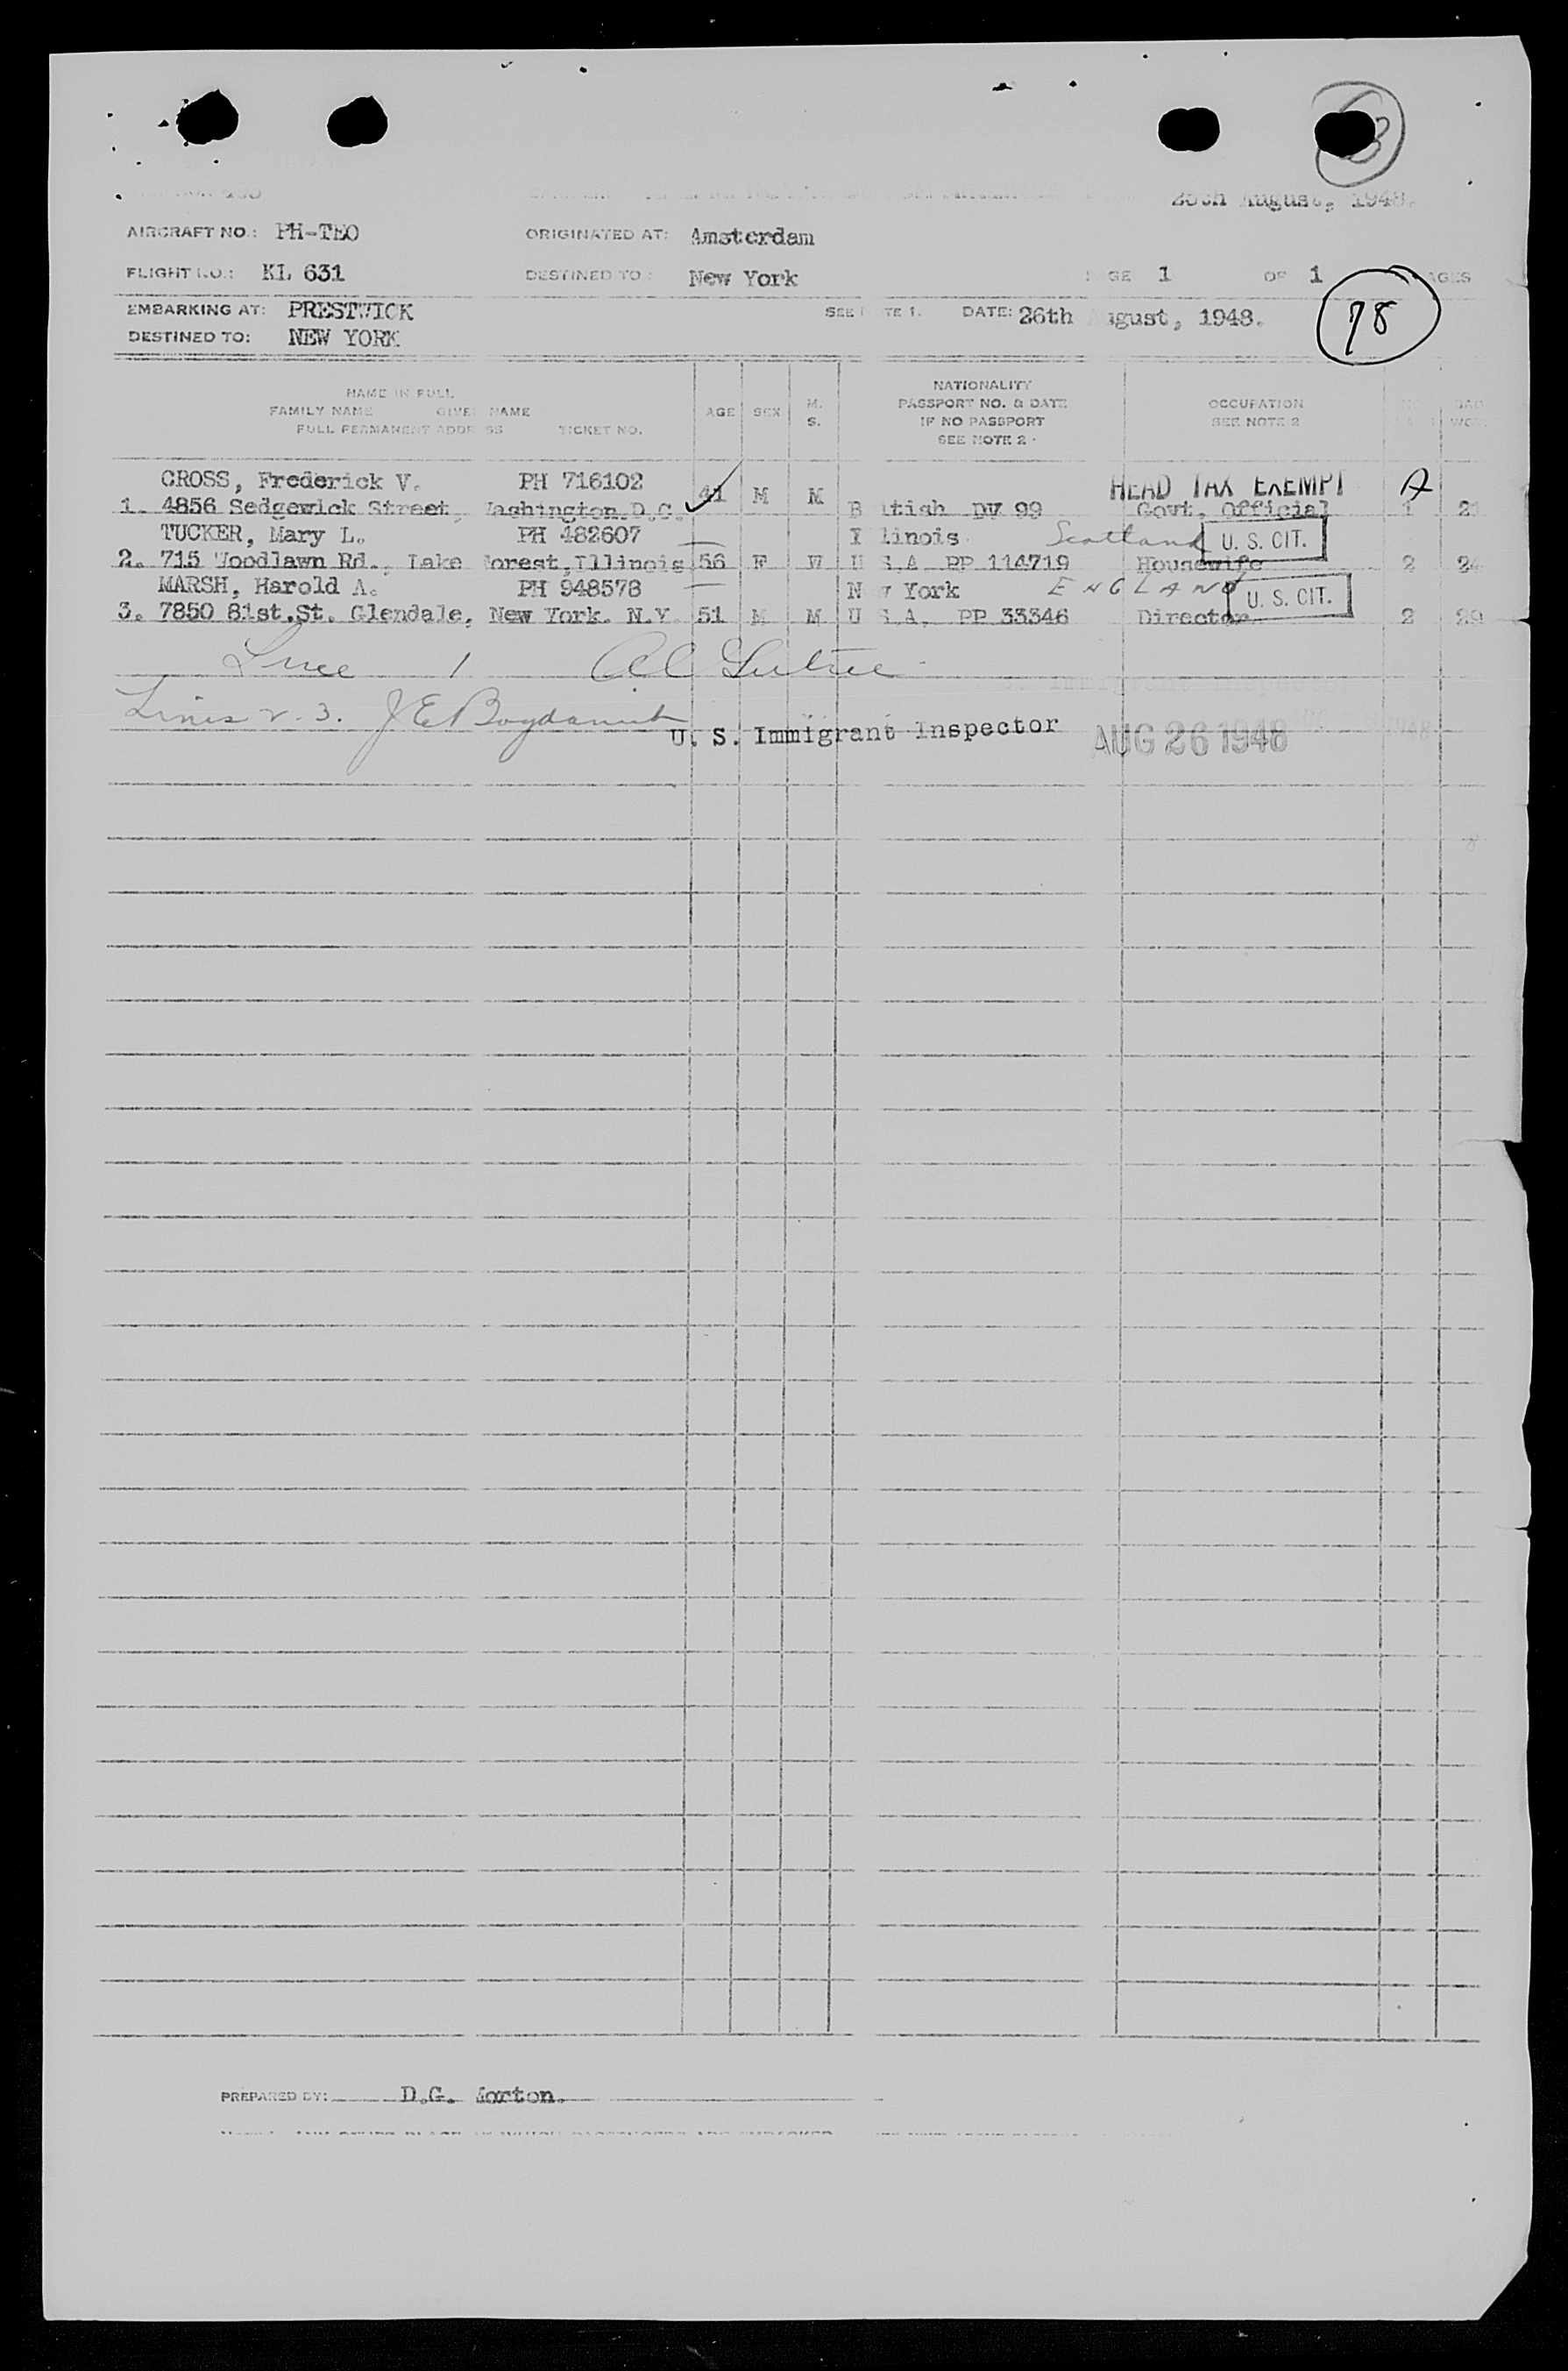 August, 1948.
AIRCRAFT NO.: PH-TEO ORIGINATED AT: Amsterdam
FLIGHT NO.: KL 631 DESTINED TO: New York PAGE 1 OF 1 PAGES
EMBARKING AT: PRESTWICK DATE: 26th August, 1948. 78
DESTINED TO: NEW YORK
NAME IN FULL
FAMILY NAME GIVEN NAME
FULL PERMANENT ADDRESS TICKET NO.
AGE SEX M. S.
NATIONALITY
PASSPORT NO. & DATE
IF NO PASSPORT
SEE NOTE 2
OCCUPATION
SEE NOTE 2
CROSS, Frederick V. PH 716102 HEAD TAX EXEMPT A
1. 4856 Sedgewick Street, Washington.D.C. 41 M M British DV 99 Govt. Official 1
TUCKER, Mary L. PH 482607 Illinois Scotland U. S. CIT.
2. 715 Woodlawn Rd., Lake Forest, Illinois 56 F W U.S.A. PP 114719 Housewife 2
MARSH, Harold A. PH 948578 New York ENGLAND U. S. CIT.
3. 7850 81st.St. Glendale, New York. N.Y. 51 M M U.S.A. PP 33346 Director 2
Line 1
Lines 2.3.
U. S. Immigrant Inspector AUG 26 1948
PREPARED BY: D.G. Morton.